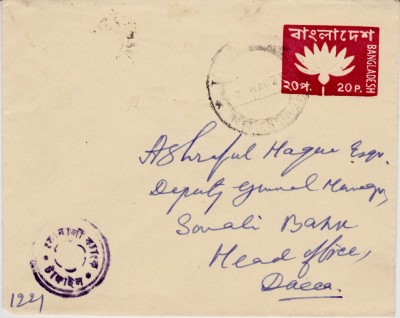 বাংলাদেশ
BANGLADESH
২০প. 20 P.
Ashraful Haque Esqr.
Deputy General Manager,
Sonali Bank
Head office,
Dacca.
সোনালী ব্যাংক
টাঙ্গাইল
1221